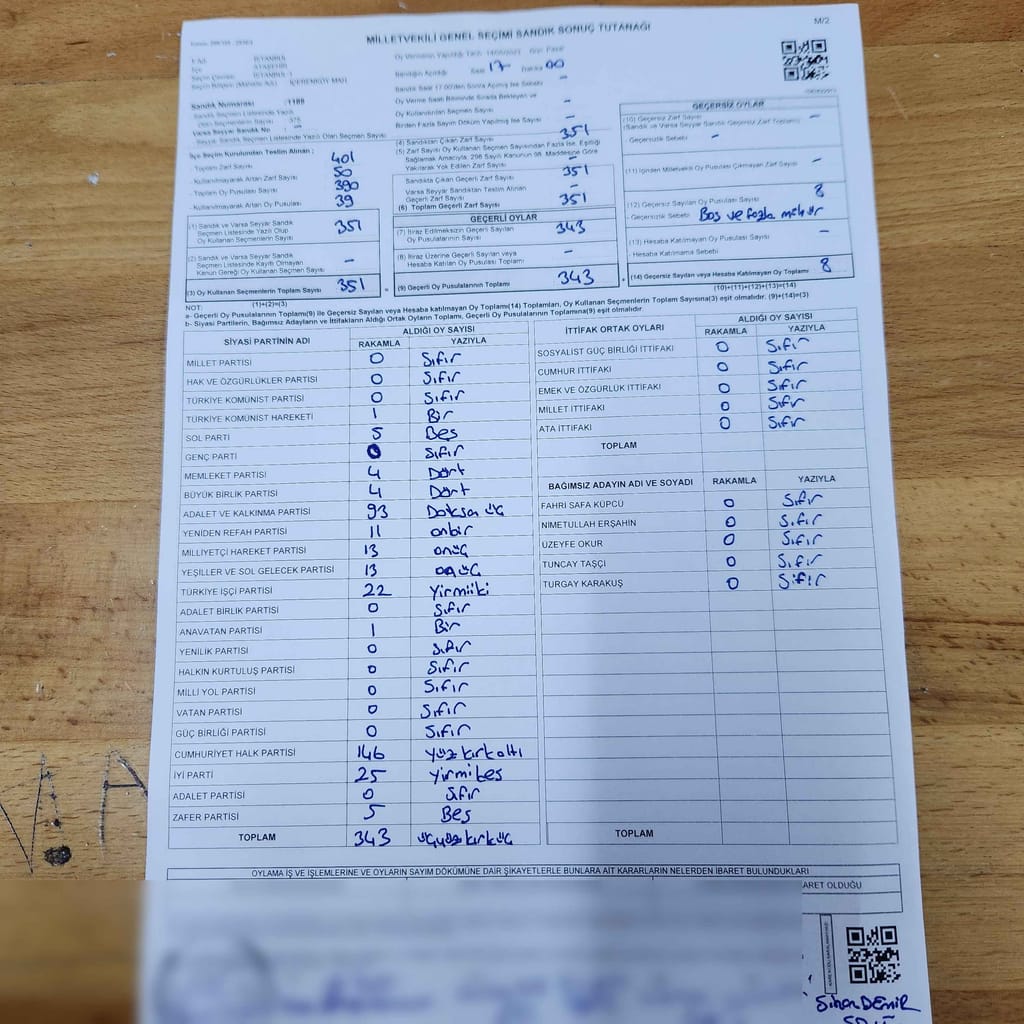 M/2
MİLLETVEKİLİ GENEL SEÇİMİ SANDIK SONUÇ TUTANAĞI
İSTANBUL
ATAŞEHİR
İSTANBUL-1
İÇERENKÖY MAH.
Saat 17 Dakika 00
Sandık Numarası : 1188
375
Varsa Seyyar Sandık No : –
Seyyar Sandık Seçmen Listesinde Yazılı Olan Seçmen Sayısı
İlçe Seçim Kurulundan Teslim Alınan ;
- Toplam Zarf Sayısı 401
- Kullanılmayarak Artan Zarf Sayısı 50
- Toplam Oy Pusulası Sayısı 390
- Kullanılmayarak Artan Oy Pusulası 39
(1) Sandık ve Varsa Seyyar Sandık Seçmen Listesinde Yazılı Olup Oy Kullanan Seçmenlerin Sayısı 351
(2) Sandık ve Varsa Seyyar Sandık Seçmen Listesinde Kayıtlı Olmayan Kanun Gereği Oy Kullanan Seçmen Sayısı –
(3) Oy Kullanan Seçmenlerin Toplam Sayısı 351
(1)+(2)=(3)
Sandık Saat 17.00'den Sonra Açılmış İse Sebebi –
Oy Verme Saati Bitiminde Sırada Bekleyen ve Oy Kullandırılan Seçmen Sayısı –
Birden Fazla Sayım Döküm Yapılmış İse Sayısı –
(4) Sandıktan Çıkan Zarf Sayısı 351
(5) Zarf Sayısı Oy Kullanan Seçmen Sayısından Fazla İse, Eşitliği Sağlamak Amacıyla, 298 Sayılı Kanunun 98. Maddesine Göre Yakılarak Yok Edilen Zarf Sayısı –
Sandıkta Çıkan Geçerli Zarf Sayısı 351
Varsa Seyyar Sandıktan Teslim Alınan Geçerli Zarf Sayısı –
(6) Toplam Geçerli Zarf Sayısı 351
GEÇERLİ OYLAR
(7) İtiraz Edilmeksizin Geçerli Sayılan Oy Pusulalarının Sayısı 343
(8) İtiraz Üzerine Geçerli Sayılan veya Hesaba Katılan Oy Pusulası Toplamı –
(9) Geçerli Oy Pusulalarının Toplamı 343
GEÇERSİZ OYLAR
(10) Geçersiz Zarf Sayısı
(Sandık ve Varsa Seyyar Sandık Geçersiz Zarf Toplamı) –
Geçersizlik Sebebi –
(11) İçinden Milletvekili Oy Pusulası Çıkmayan Zarf Sayısı –
(12) Geçersiz Sayılan Oy Pusulası Sayısı 8
- Geçersizlik Sebebi Boş ve fazla mühür
(13) Hesaba Katılmayan Oy Pusulası Sayısı –
- Hesaba Katılmama Sebebi
(14) Geçersiz Sayılan veya Hesaba Katılmayan Oy Toplamı 8
(10)+(11)+(12)+(13)=(14)
NOT:
a- Geçerli Oy Pusulalarının Toplamı(9) ile Geçersiz Sayılan veya Hesaba katılmayan Oy Toplamı(14) Toplamları, Oy Kullanan Seçmenlerin Toplam Sayısına(3) eşit olmalıdır. (9)+(14)=(3)
b- Siyasi Partilerin, Bağımsız Adayların ve İttifakların Aldığı Ortak Oyların Toplamı, Geçerli Oy Pusulalarının Toplamına(9) eşit olmalıdır.
SİYASİ PARTİNİN ADI ALDIĞI OY SAYISI
RAKAMLA YAZIYLA
MİLLET PARTİSİ 0 Sıfır
HAK VE ÖZGÜRLÜKLER PARTİSİ 0 Sıfır
TÜRKİYE KOMÜNİST PARTİSİ 0 Sıfır
TÜRKİYE KOMÜNİST HAREKETİ 1 Bir
SOL PARTİ 5 Beş
GENÇ PARTİ 0 Sıfır
MEMLEKET PARTİSİ 4 Dört
BÜYÜK BİRLİK PARTİSİ 4 Dört
ADALET VE KALKINMA PARTİSİ 93 Doksan üç
YENİDEN REFAH PARTİSİ 11 onbir
MİLLİYETÇİ HAREKET PARTİSİ 13 onüç
YEŞİLLER VE SOL GELECEK PARTİSİ 13 onüç
TÜRKİYE İŞÇİ PARTİSİ 22 Yirmiiki
ADALET BİRLİK PARTİSİ 0 Sıfır
ANAVATAN PARTİSİ 1 Bir
YENİLİK PARTİSİ 0 Sıfır
HALKIN KURTULUŞ PARTİSİ 0 Sıfır
MİLLİ YOL PARTİSİ 0 Sıfır
VATAN PARTİSİ 0 Sıfır
GÜÇ BİRLİĞİ PARTİSİ 0 Sıfır
CUMHURİYET HALK PARTİSİ 146 yüz kırk altı
İYİ PARTİ 25 yirmibeş
ADALET PARTİSİ 0 Sıfır
ZAFER PARTİSİ 5 Beş
TOPLAM 343 üçyüz kırküç
İTTİFAK ORTAK OYLARI ALDIĞI OY SAYISI
RAKAMLA YAZIYLA
SOSYALİST GÜÇ BİRLİĞİ İTTİFAKI 0 Sıfır
CUMHUR İTTİFAKI 0 Sıfır
EMEK VE ÖZGÜRLÜK İTTİFAKI 0 Sıfır
MİLLET İTTİFAKI 0 Sıfır
ATA İTTİFAKI 0 Sıfır
TOPLAM
BAĞIMSIZ ADAYIN ADI VE SOYADI RAKAMLA YAZIYLA
FAHRİ SAFA KÜPCÜ 0 Sıfır
NİMETULLAH ERŞAHİN 0 Sıfır
ÜZEYFE OKUR 0 Sıfır
TUNCAY TAŞÇI 0 Sıfır
TURGAY KARAKUŞ 0 Sıfır
TOPLAM
OYLAMA İŞ VE İŞLEMLERİNE VE OYLARIN SAYIM DÖKÜMÜNE DAİR ŞİKAYETLERLE BUNLARA AİT KARARLARIN NELERDEN İBARET BULUNDUKLARI
ARET OLDUĞU
Sinan DEMİR